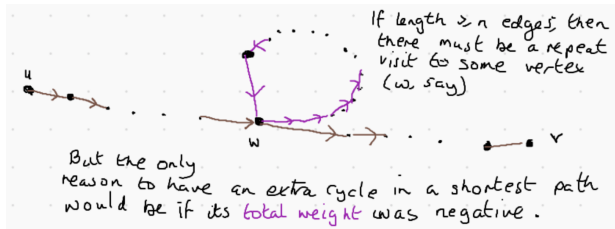 If length ≥ n edges, then
there must be a repeat
visit to some vertex
(w, say)
u
w
v
But the only
reason to have an extra cycle in a shortest path
would be if its total weight was negative.